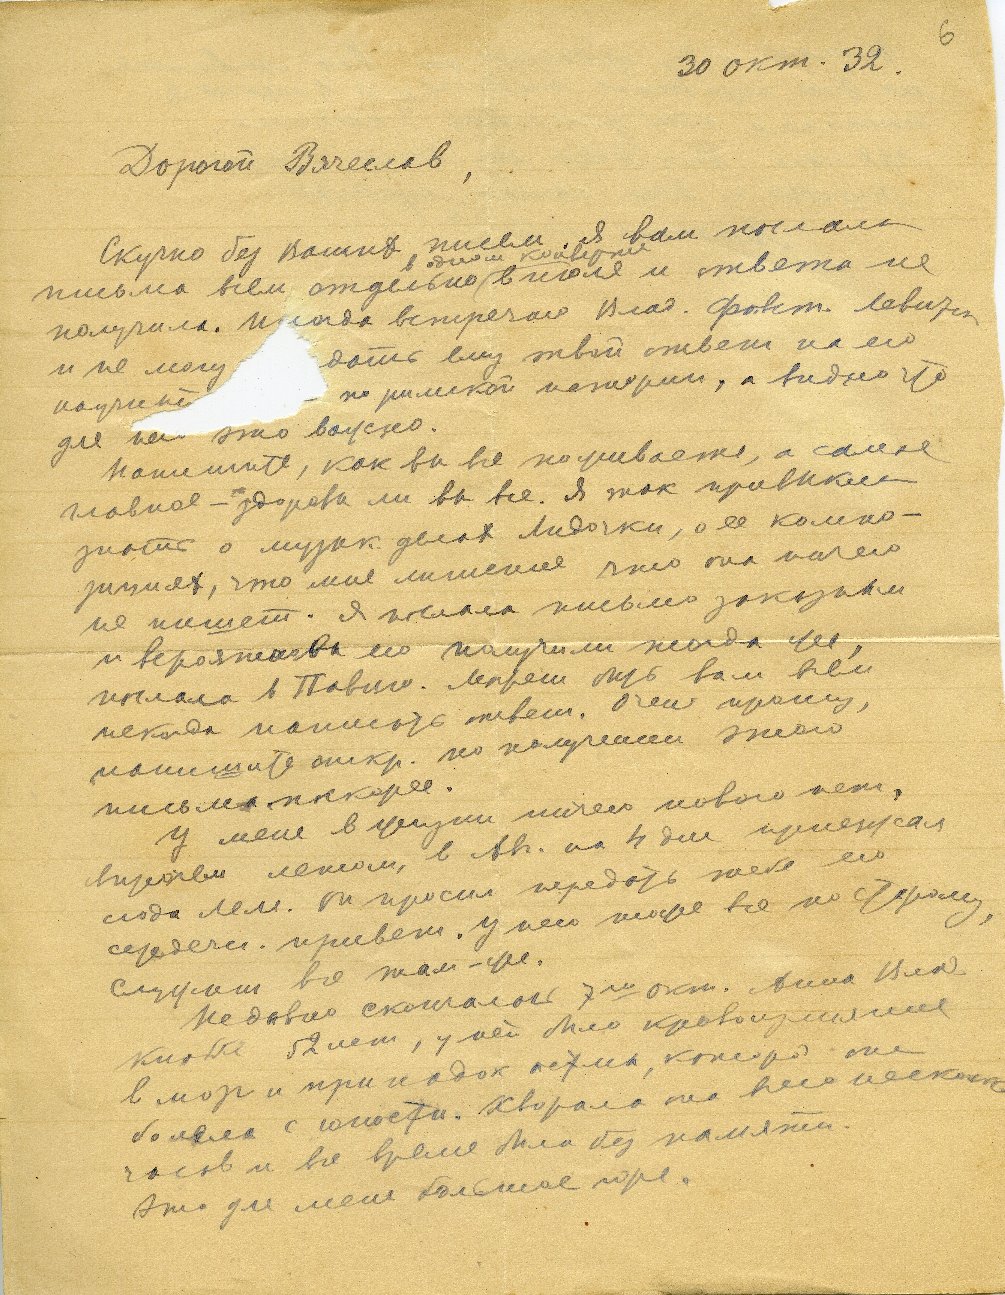 6
30 окт. 32.
Дорогой Вячеслав,
Скучно без Ваших писем. Я вам послала
в одном конверте
письма всем отдельно в июле и ответа не
получила. Иногда встречаю Влад. Левицк
и не могу дать ему твой ответ на его
научный по римской истории, а видно что
для него это важно.
Напишите, как вы все поживаете, а самое
главное – здоровы ли вы все. Я так привыкла
знать о музык. делах Лидочки, о ее компо-
зициях, что мне лишение что она ничего
не пишет. Я послала письмо заказным
и вероятно вы его получили тогда же,
послала в Павию. Может быть вам всем
некогда написать ответ. Очень прошу,
напишите откр. по получении этого
письма поскорее.
У меня в жизни ничего нового нет,
впрочем летом, в Авг. на 4 дня приезжал
сюда Он просил передать тебе его
сердечн. привет. У него тоже все по старому,
служит все там-же.
Недавно скончалась 7го окт. Анна Влад
52 лет, у ней было кровоизлияние
в мозг и припадок астмы, которой она
болела с юности. Хворала она всего несколько
часов и все время была без памяти.
Это для меня большое горе.